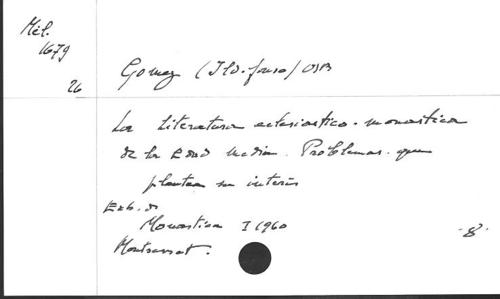 Mél.
1679
26
Gomez (Ildefonso) OSB
La literatura eclesiastico-monastica
de la Edad Media. Problemas que
plantea su interés
Ext. de
Monastica I 1960
Montserrat.
8°